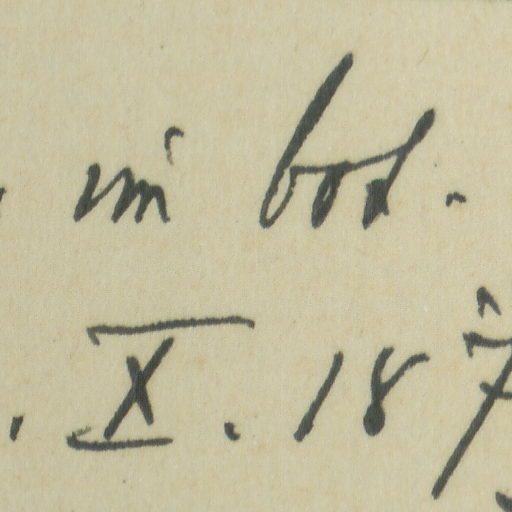 im bot.
. X. 187